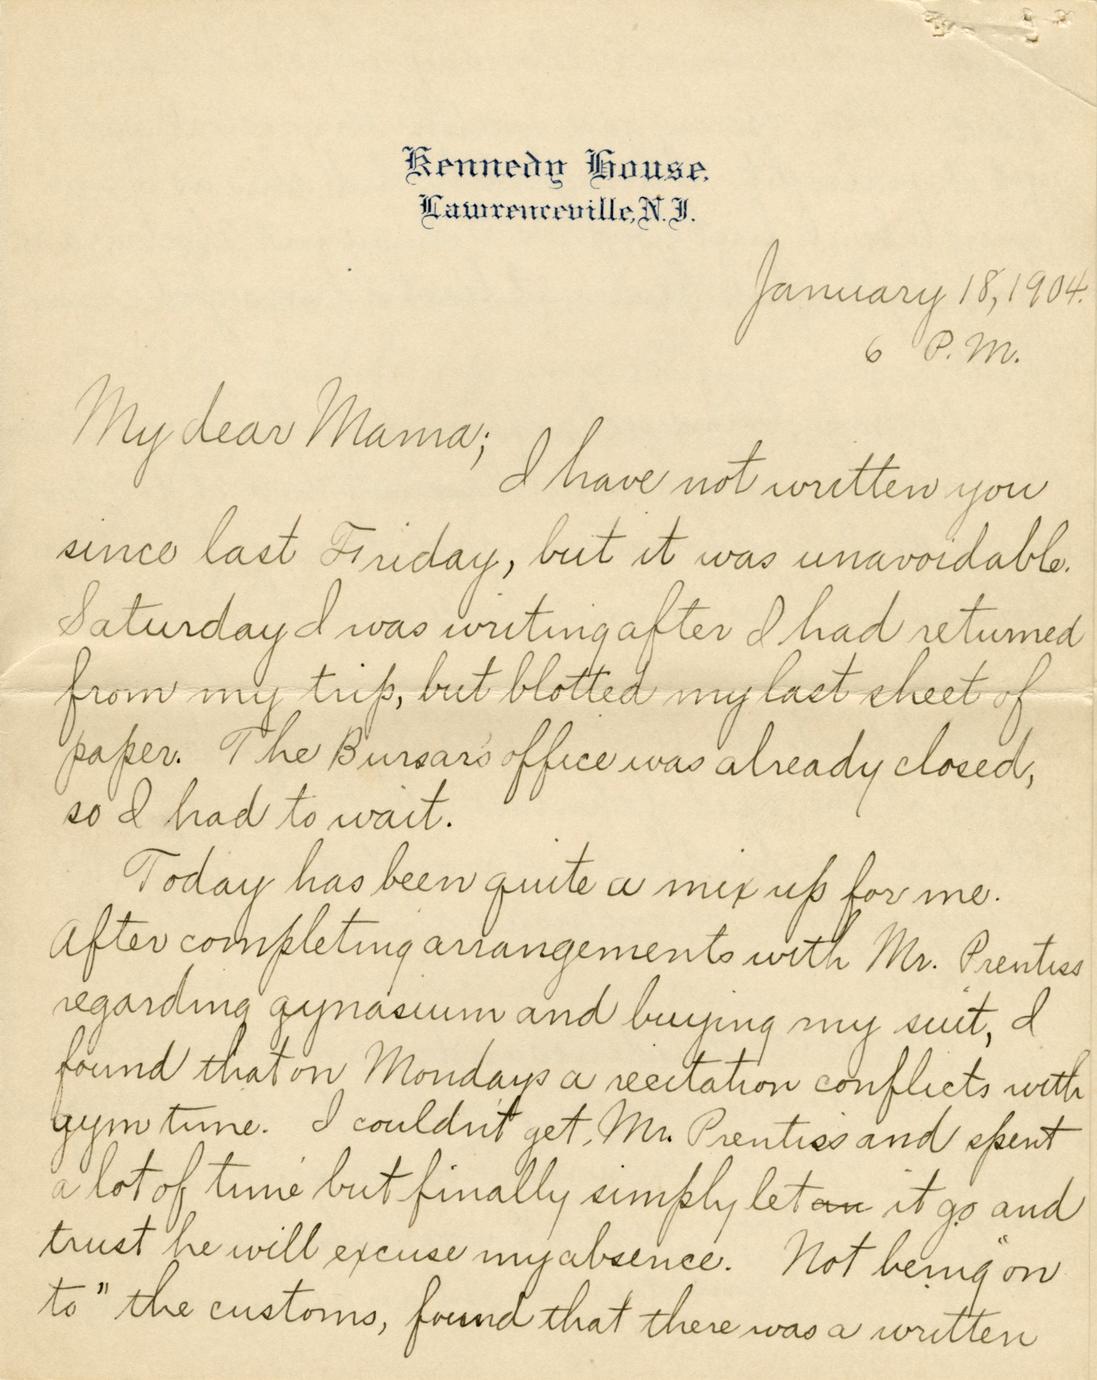 Kennedy House,
Lawrenceville, N.J.
January 18, 1904.
6 P.M.
My dear Mama;
I have not written you
since last Friday, but it was unavoidable.
Saturday I was writing after I had returned
from my trip, but blotted my last sheet of
paper. The Bursar's office was already closed,
so I had to wait.
Today has been quite a mix up for me.
After completing arrangements with Mr. Prentiss
regarding gynasium and buying my suit, I
found that on Mondays a recitation conflicts with
gym time. I couldn't get Mr. Prentiss and spent
a lot of time but finally simply let an it go and
trust he will excuse my absence. Not being "on
to" the customs, found that there was a written